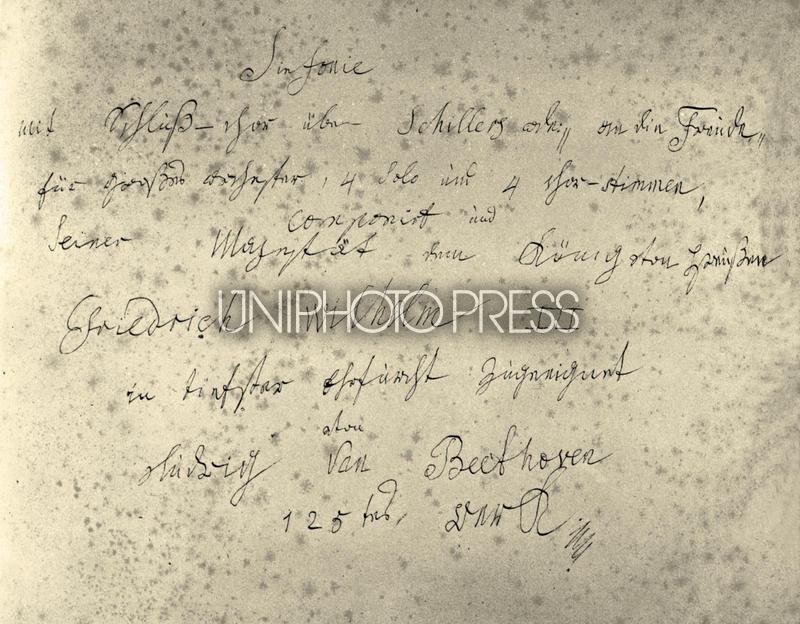 Sinfonie
mit Schluß-chor über Schillers ode: „an die Freude„
für großes orchester, 4 Solo und 4 chor-stimmen,
componirt und
Seiner Majestät dem König von Preußen
Friedrich Wilhelm III
UNIPHOTO PRESS
in tiefster Ehrfurcht zugeeignet
von
Ludwig van Beethoven
125tes Werk